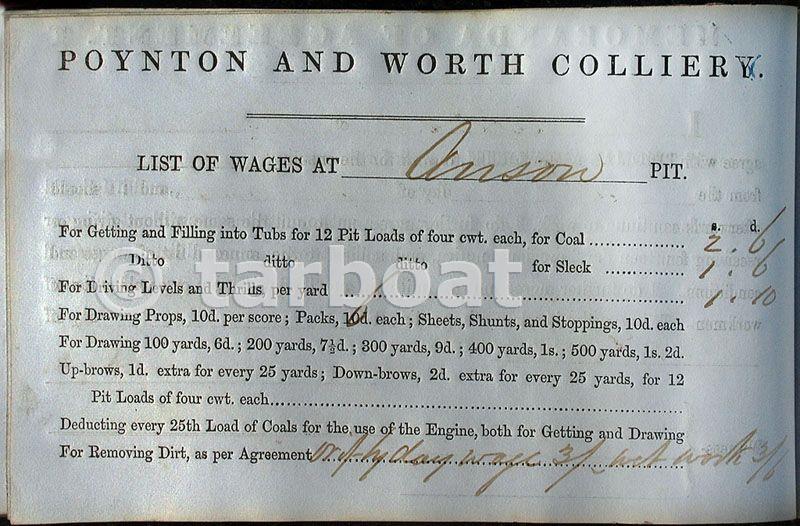 POYNTON AND WORTH COLLIERY.
LIST OF WAGES AT Anson PIT.
s. d.
For Getting and Filling into Tubs for 12 Pit Loads of four cwt. each, for Coal 2. 6
Ditto ditto ditto for Sleck 1. 6
For Driving Levels and Thrills, per yard 1. 10
For Drawing Props, 10d. per score; Packs, 10d. each; Sheets, Shunts, and Stoppings, 10d. each
For Drawing 100 yards, 6d.; 200 yards, 7½d.; 300 yards, 9d.; 400 yards, 1s.; 500 yards, 1s. 2d.
Up-brows, 1d. extra for every 25 yards; Down-brows, 2d. extra for every 25 yards, for 12
Pit Loads of four cwt. each
Deducting every 25th Load of Coals for the use of the Engine, both for Getting and Drawing
For Removing Dirt, as per Agreement or if by day wage 3/ wet work 3/6
© tarboat